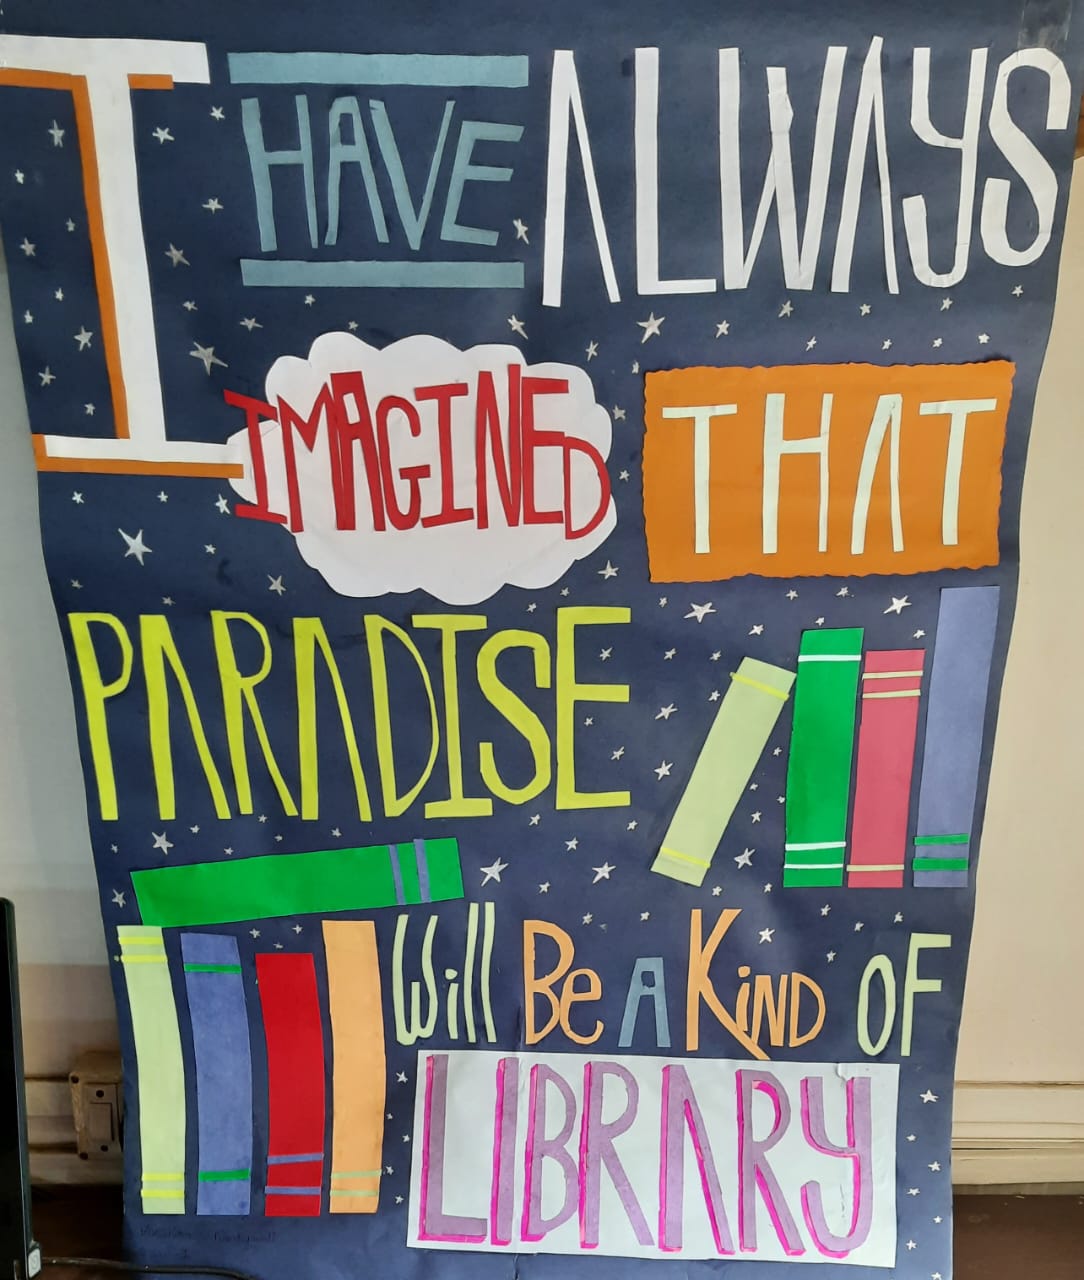 I HAVE ALWAYS
IMAGINED THAT
PARADISE
Will Be A KiND OF
LIBRARY